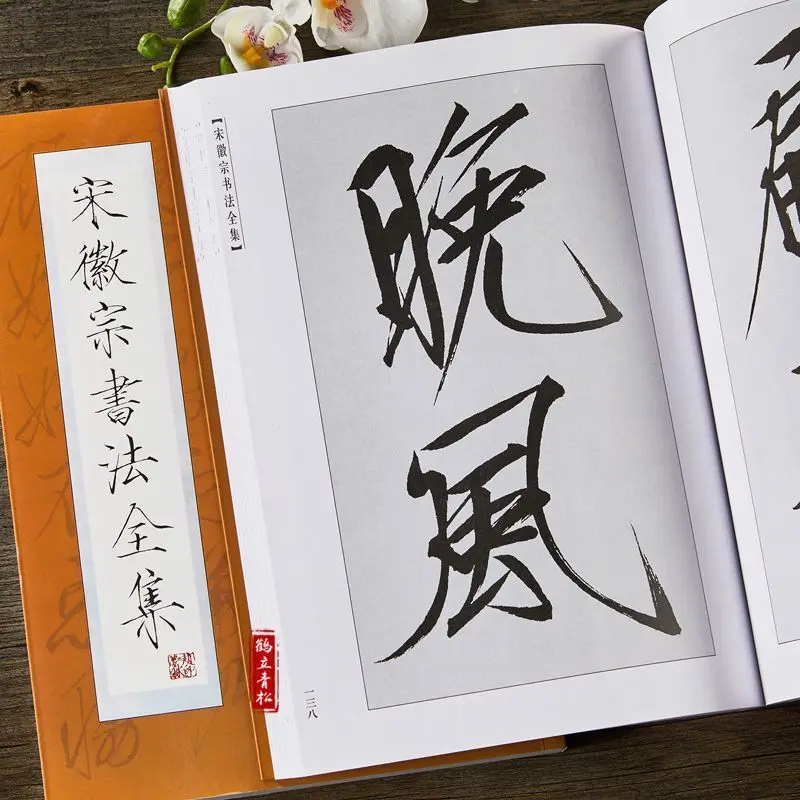 宋徽宗書法全集
【宋徽宗书法全集】
晚風
鹤立青松
一三八